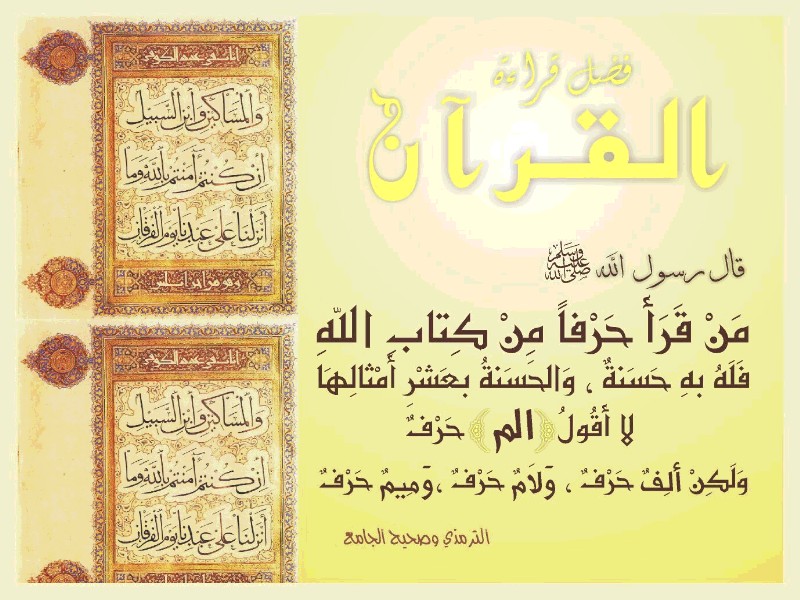 فضل قراءة
القرآن
قال رسول الله ﷺ
مَنْ قَرَأَ حَرْفاً مِنْ كِتَابِ اللّهِ
فَلَهُ بِهِ حَسَنَةٌ ، وَالحَسَنةُ بعَشْرِ أَمْثالِهَا
لا أَقُولُ ﴿الم﴾ حَرْفٌ
وَلَكِنْ أَلِفٌ حَرْفٌ ، وَلَامٌ حَرْفٌ ،وَمِيمٌ حَرْفٌ
الترمذي وصحيح الجامع
والمساكين وابن السبيل
ان كنتم آمنتم بالله وما
انزلنا على عبدنا يوم الفرقان
والمساكين وابن السبيل
ان كنتم آمنتم بالله وما
انزلنا على عبدنا يوم الفرقان